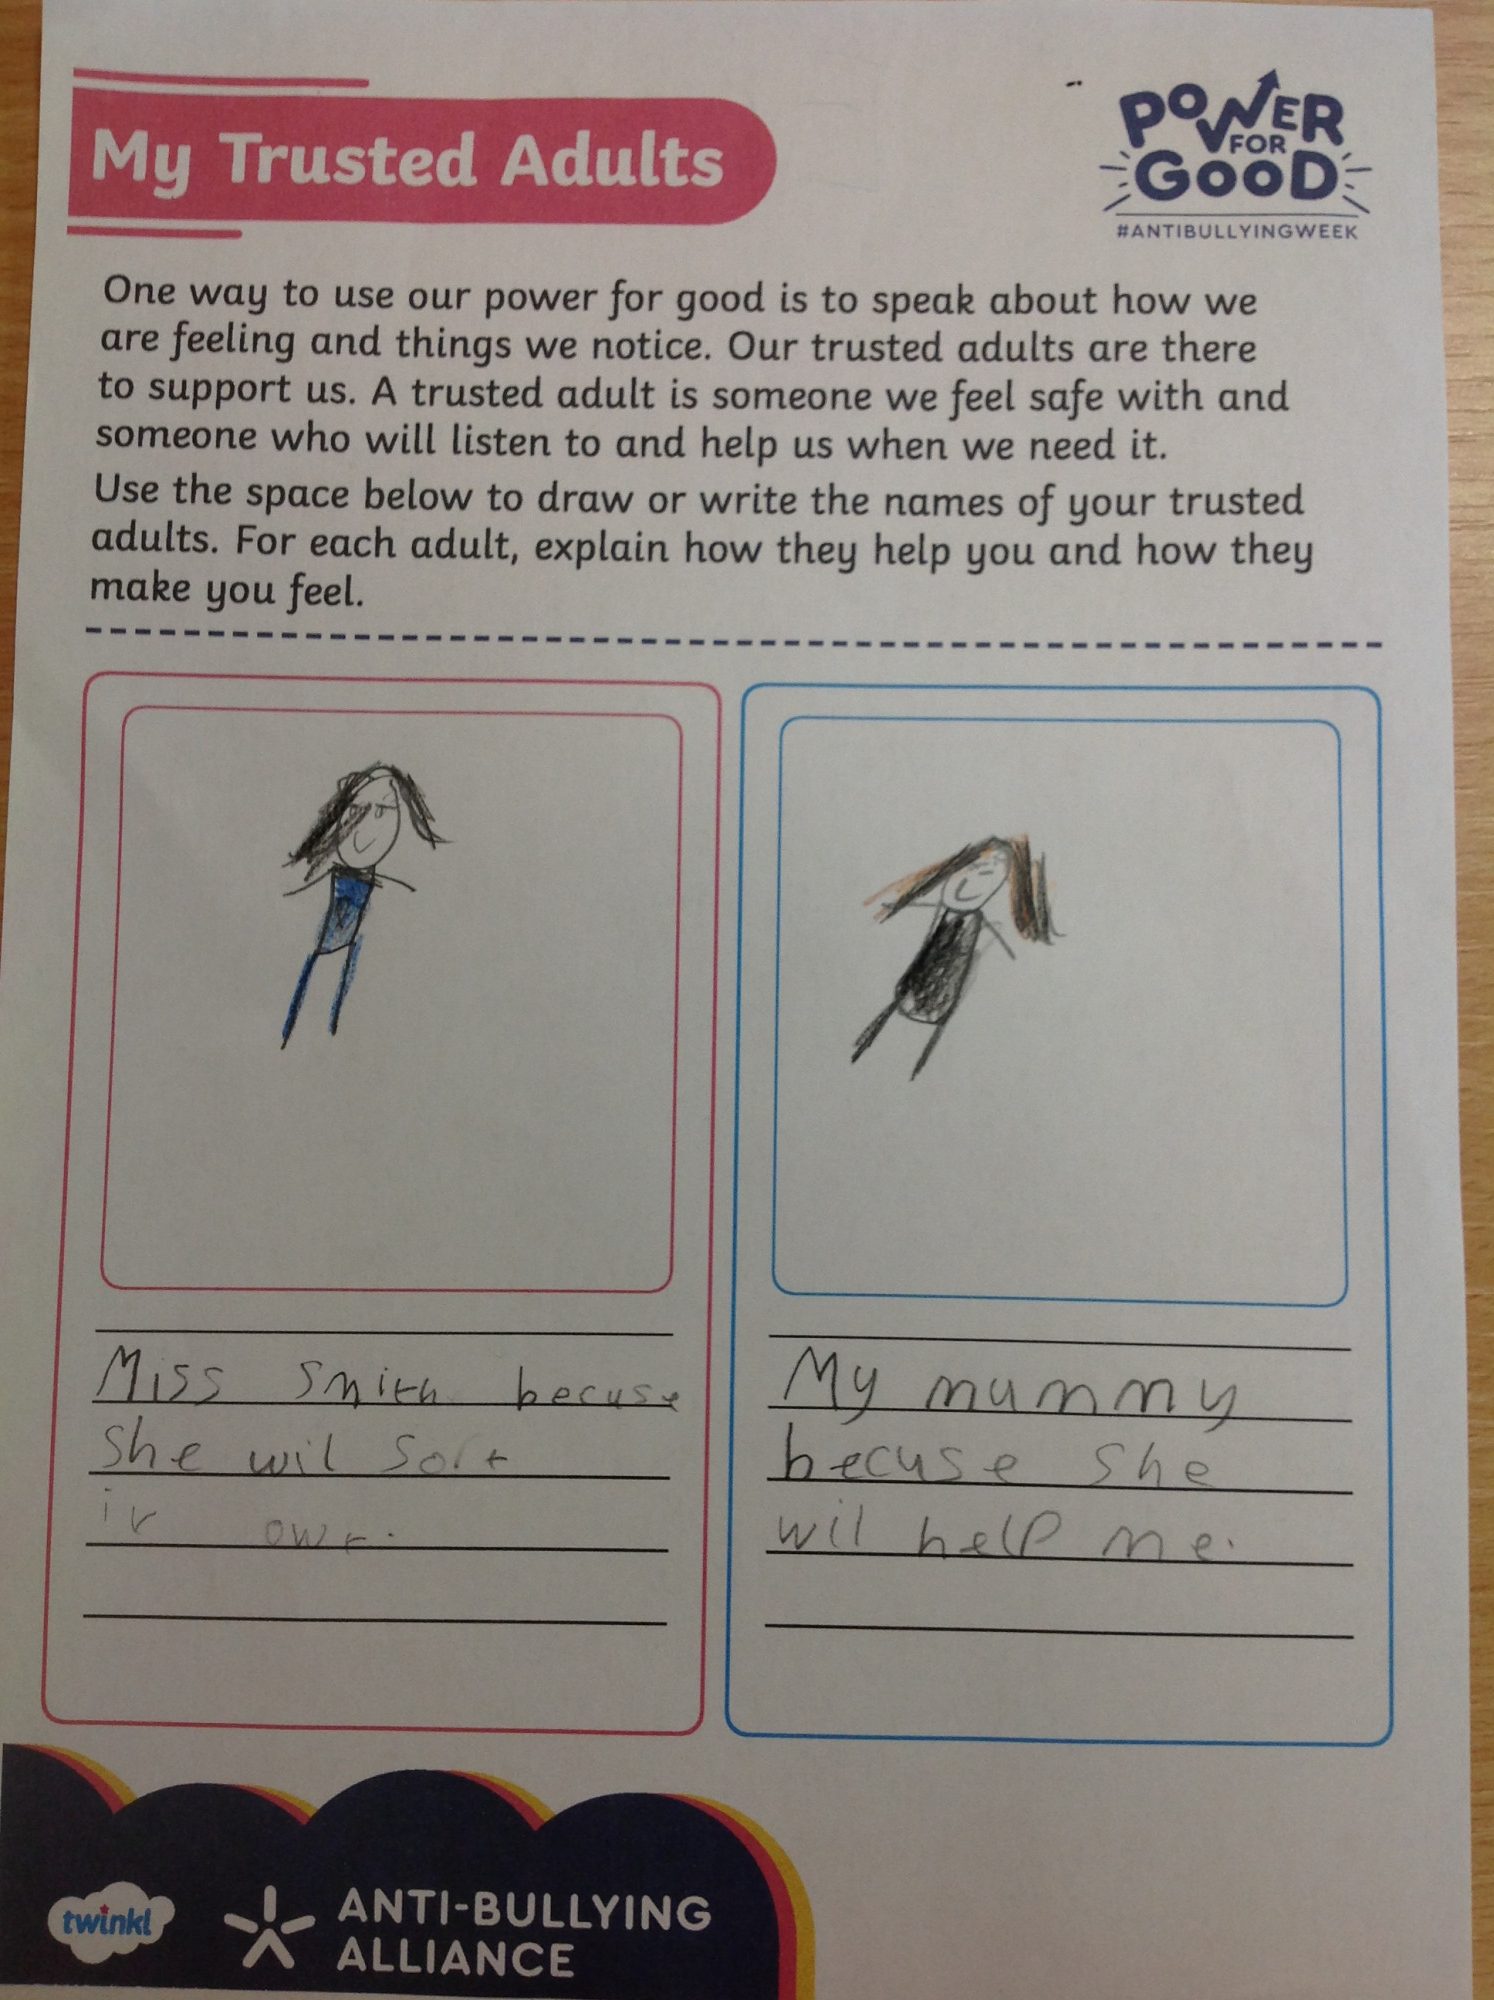 My Trusted Adults
POWER
FOR
GOOD
#ANTIBULLYINGWEEK
One way to use our power for good is to speak about how we
are feeling and things we notice. Our trusted adults are there
to support us. A trusted adult is someone we feel safe with and
someone who will listen to and help us when we need it.
Use the space below to draw or write the names of your trusted
adults. For each adult, explain how they help you and how they
make you feel.
Miss Smith becuse
She wil sort
it owt.
My mummy
becuse she
wil help me.
twinkl
ANTI-BULLYING
ALLIANCE